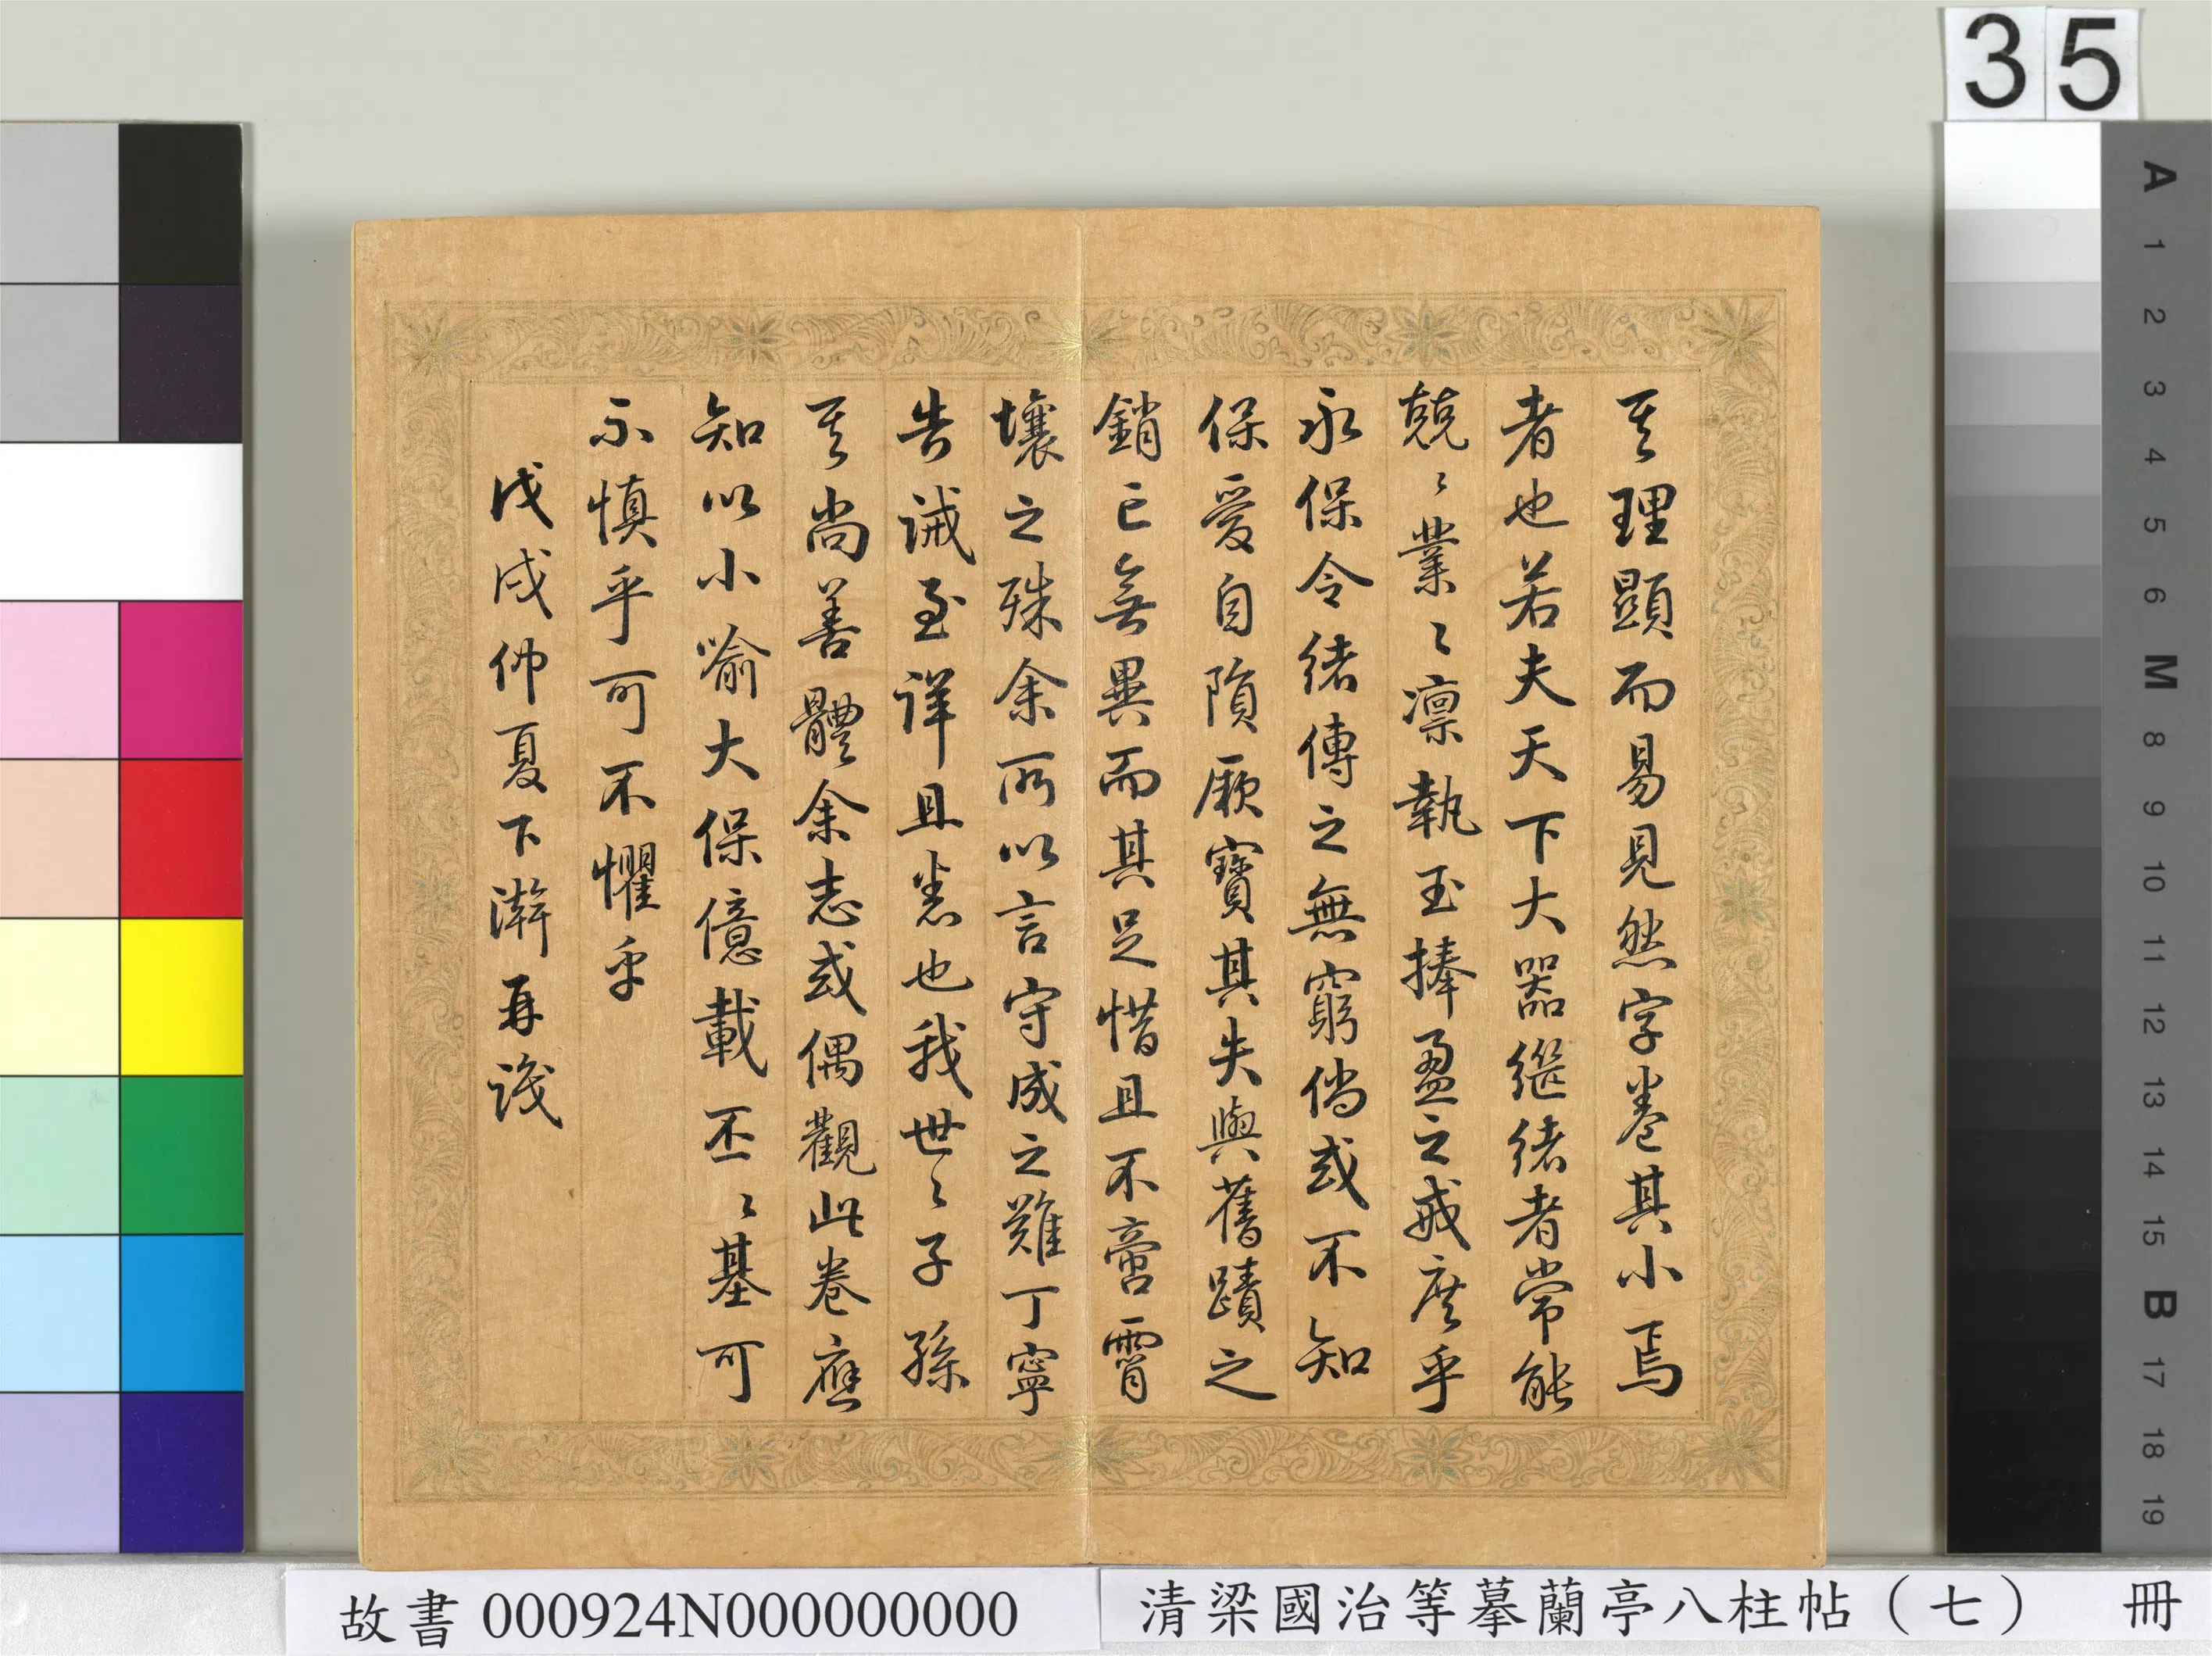 35
其理顯而易見然字卷其小焉
者也若夫天下大器繼緒者常能
兢〻業〻凜執玉捧盈之戒庶乎
永保令緒傳之無窮倘或不知
保愛自隕厥寶其失與舊蹟之
銷亡無異而其足惜且不啻霄
壤之殊余所以言守成之難丁寧
告誡至詳且悉也我世〻子孫
其尚善體余志或偶觀此卷應
知以小喻大保億載丕〻基可
不慎乎可不懼乎
戊戌仲夏下澣再識
A 1 2 3 4 5 6 M 8 9 10 11 12 13 14 15 B 17 18 19
故書 000924N000000000
清梁國治等摹蘭亭八柱帖（七） 冊